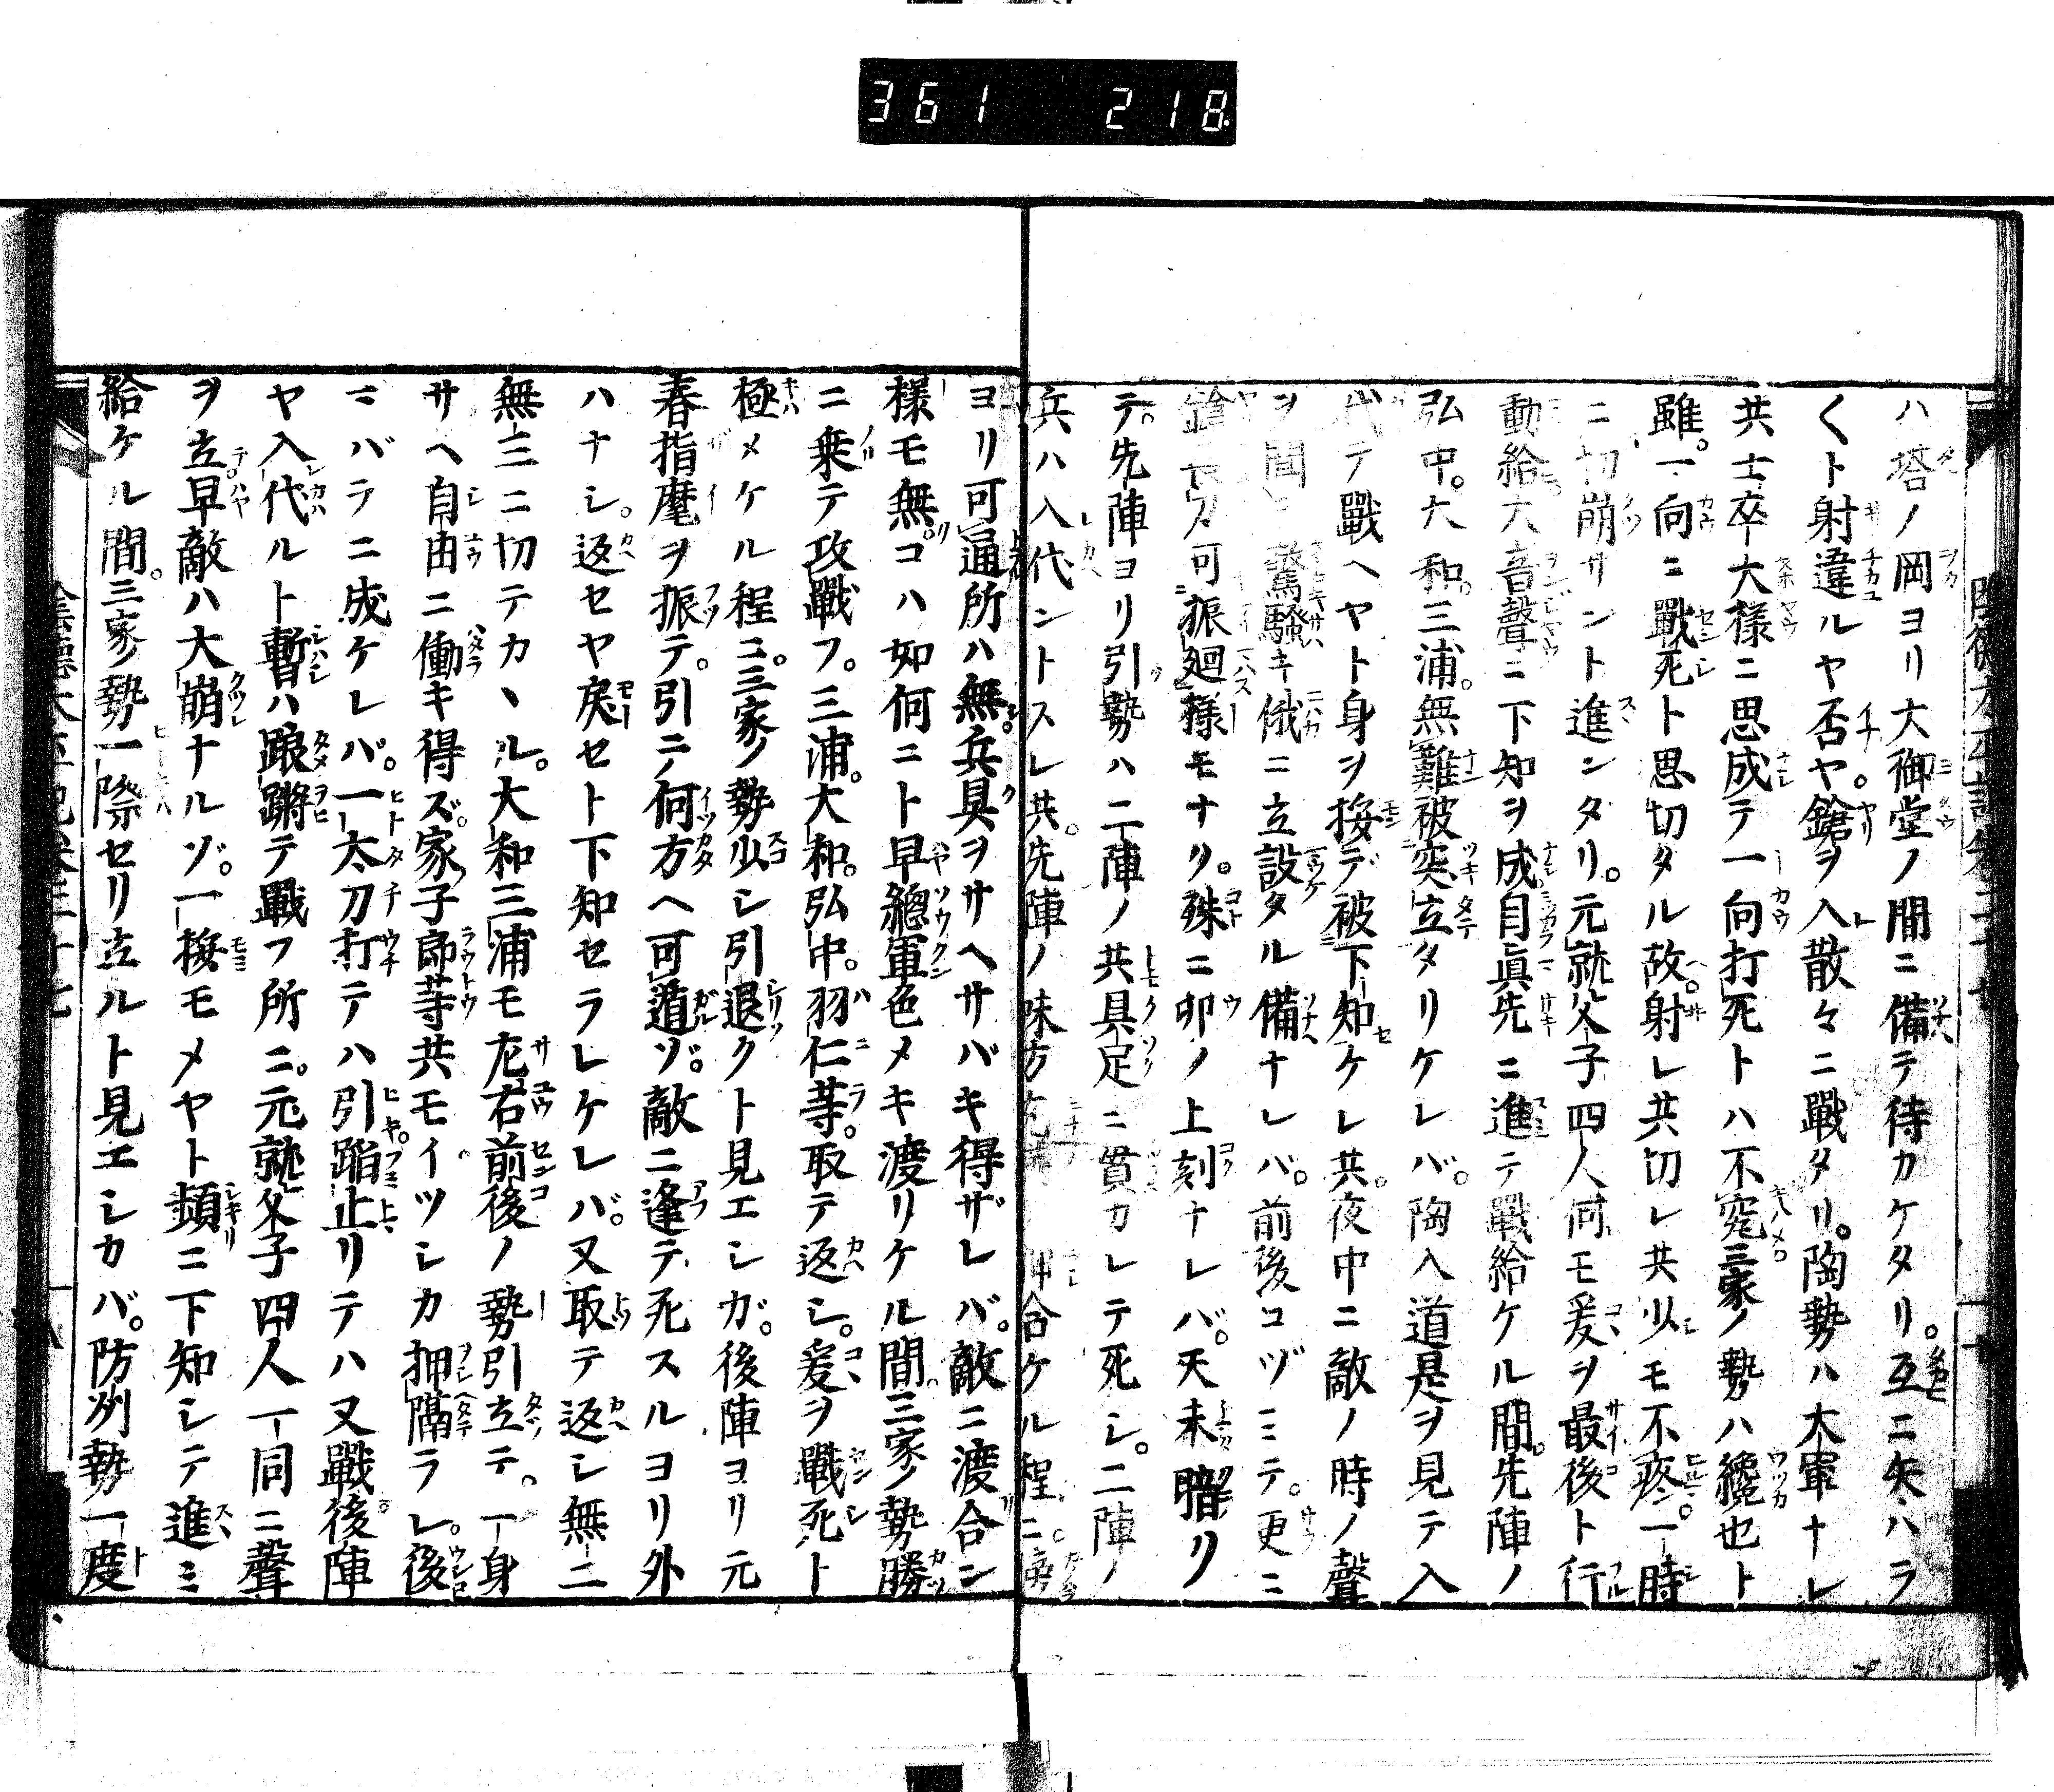 361 218
ハ塔ノ岡ヨリ大御堂ノ間ニ備テ待カケタリ。互ニ矢ハラ
〱ト射違ルヤ否ヤ。鎗ヲ入散々ニ戰タリ。陶勢ハ大軍ナレ
共士卒大様ニ思成テ一向打死トハ不究三家ノ勢ハ纔也ト
雖。一向ニ戰死ト思切タル故。射レ共切レ共少モ不疼。一時
ニ切崩サント進ンタリ。元就父子四人何モ爰ヲ最後ト行
動給大音聲ニ下知ヲ成自眞先ニ進テ戰給ケル間。先陣ノ
弘中。大和。三浦。無難被突立タリケレバ。陶入道是ヲ見テ入
代テ戰ヘヤト身ヲ挼デ被下知ケレ共。夜中ニ敵ノ時ノ聲
ヲ聞 驚騷キ俄ニ立設タル備ナレバ。前後コヅミテ。更ニ
鎗 可振廻様モナク。殊ニ卯ノ上刻ナレバ。天未
テ。先陣ヨリ引勢ハ二陣ノ共具足ニ貫カレテ死シ。二陣ノ
兵ハ入代ントスレ共。先陣ノ味方 合ケル程ニ。
ヨリ可通所ハ無。兵具ヲサヘサバキ得ザレバ。敵ニ渡合ン
様モ無。コハ如何ニト早總軍色メキ渡リケル間。三家ノ勢勝
ニ乗テ攻戰フ。三浦。大和。弘中。羽仁等。取テ返シ。爰ヲ戰死ト
極メケル程ニ。三家ノ勢少シ引退クト見エシガ。後陣ヨリ元
春指麾ヲ振テ。引ニノ何方ヘ可遁ゾ。敵ニ逢テ死スルヨリ外
ハナシ。返セヤ戻セト下知セラレケレバ。又取テ返シ無二
無三ニ切テカヽル。大和三浦モ左右前後ノ勢引立テ。一身
サヘ自由ニ働キ得ズ。家子郎等共モイツシカ押隔ラレ。後
ニバラニ成ケレバ。一太刀打テハ引蹈止リテハ又戰後陣
ヤ入代ルト暫ハ踉蹡テ戰フ所ニ。元就父子四人一同ニ聲
ヲ立早敵ハ大崩ナルゾ。一挼モメヤト頻ニ下知シテ進ミ
給ケル間。三家ノ勢一際セリ立ルト見エシカバ。防州勢一度